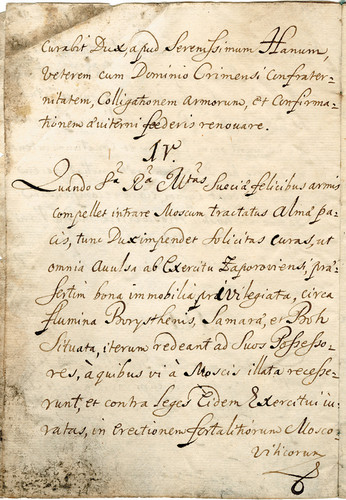 Curabit Dux, apud Serenissimum Hanum,
veterem cum Dominio Crimensi Confrater-
nitatem, Colligationem Armorum, et Confirma-
tionem æviterni foederis renovare.
IV.
Quando Sa Ra Mtas Suæciæ felicibus armis
compellet intrare Moscum tractatus Almæ pa-
cis, tunc Dux impendet solicitas curas, ut
omnia Avulsa ab Exercitu Zaporoviensi, præ-
sertim bona immobilia prævilegiata, circa
flumina Borysthenis, Samaræ, et Boh
Situata, iterum redeant ad Suos Possesso-
res, à quibus vi à Moscis illata recesse-
runt, et contra Leges Eidem Exercitui iu-
ratas, in erectionem fortalitiorum Mosco-
viticorum